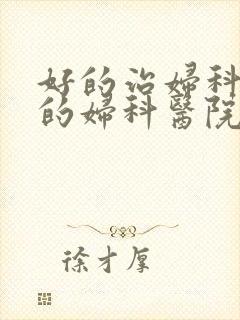 好的治婦科
的婦科醫院
徐才厚